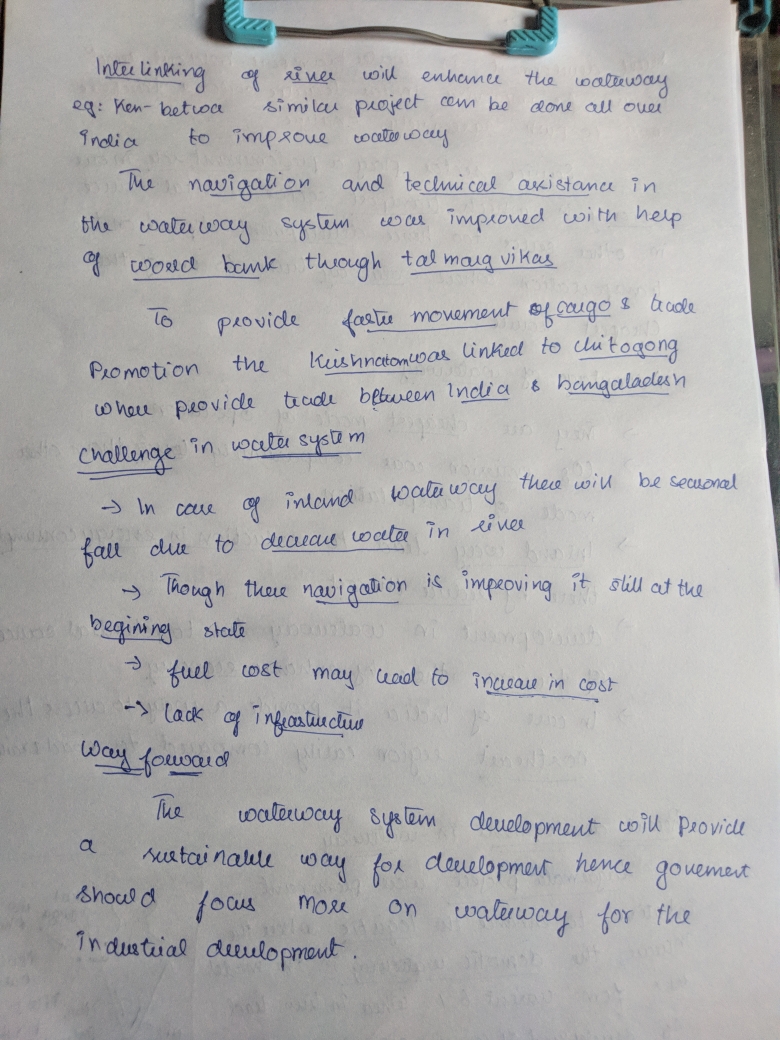 Interlinking of river will enhance the waterway
eg: Ken-betwa similar project can be done all over
India to improve waterway
The navigation and technical assistance in
the waterway system was improved with help
of world bank through Jal marg vikas
To provide faster movement of cargo & trade
Promotion the Krishnatam was linked to chitogong
where provide trade between India & bangaladesh
challenge in water system
→ In case of inland waterway there will be seasonal
fall due to decrease water in river
→ Though there navigation is improving it still at the
begining state
→ fuel cost may lead to increase in cost
→ lack of infrastructure
way forward
The waterway system development will Provide
a sustainable way for development hence goverment
should focus more on waterway for the
industrial development.